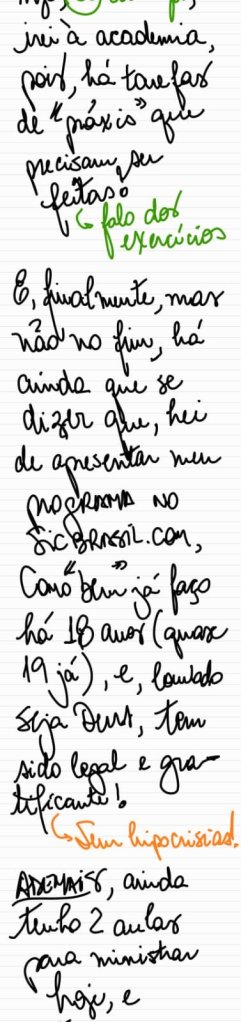 irei à academia,
pois, há tarefas
de "práxis" que
precisam ser
feitas.
falo dos
exercícios
E, finalmente, mas
não no fim, há
ainda que se
dizer que, hei
de apresentar meu
PROGRAMA NO
SICBRASIL.COM,
Como "bem" já faço
há 18 anos (quase
19 já), e, louvado
seja Deus, tem
sido legal e gra-
tificante!
Sem hipocrisias!
ADEMAIS, ainda
tenho 2 aulas
para ministrar
hoje, e